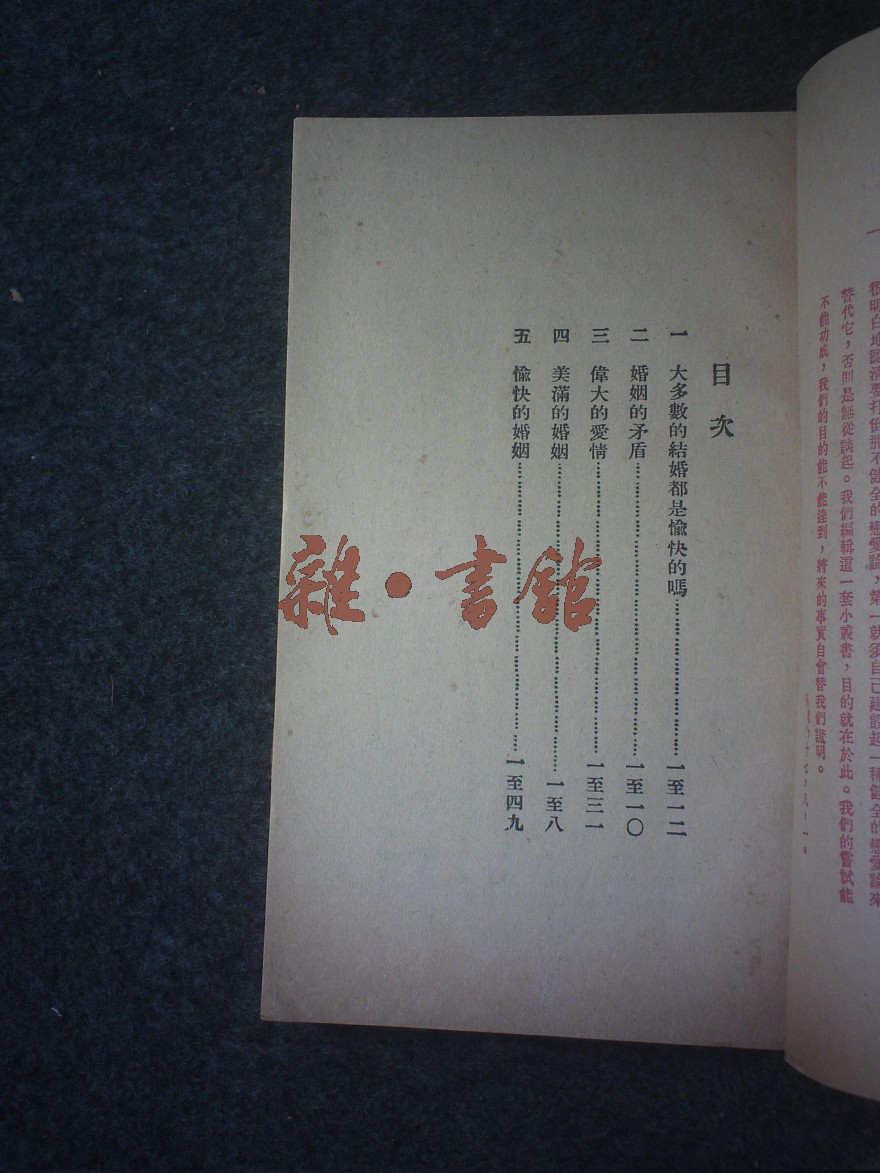 很明白地認清要打倒那不健全的戀愛論，第一就須自己建設起一種健全的戀愛論來
替代它，否則是無從談起。我們編輯這一套小叢書，目的就在於此。我們的嘗試能
不能功成，我們的目的能不能達到，將來的事實自會替我們證明。
目次
一 大多數的結婚都是愉快的嗎……一至一二
二 婚姻的矛盾……一至一〇
三 偉大的愛情……一至三一
四 美滿的婚姻……一至八
五 愉快的婚姻……一至四九
雜·書館